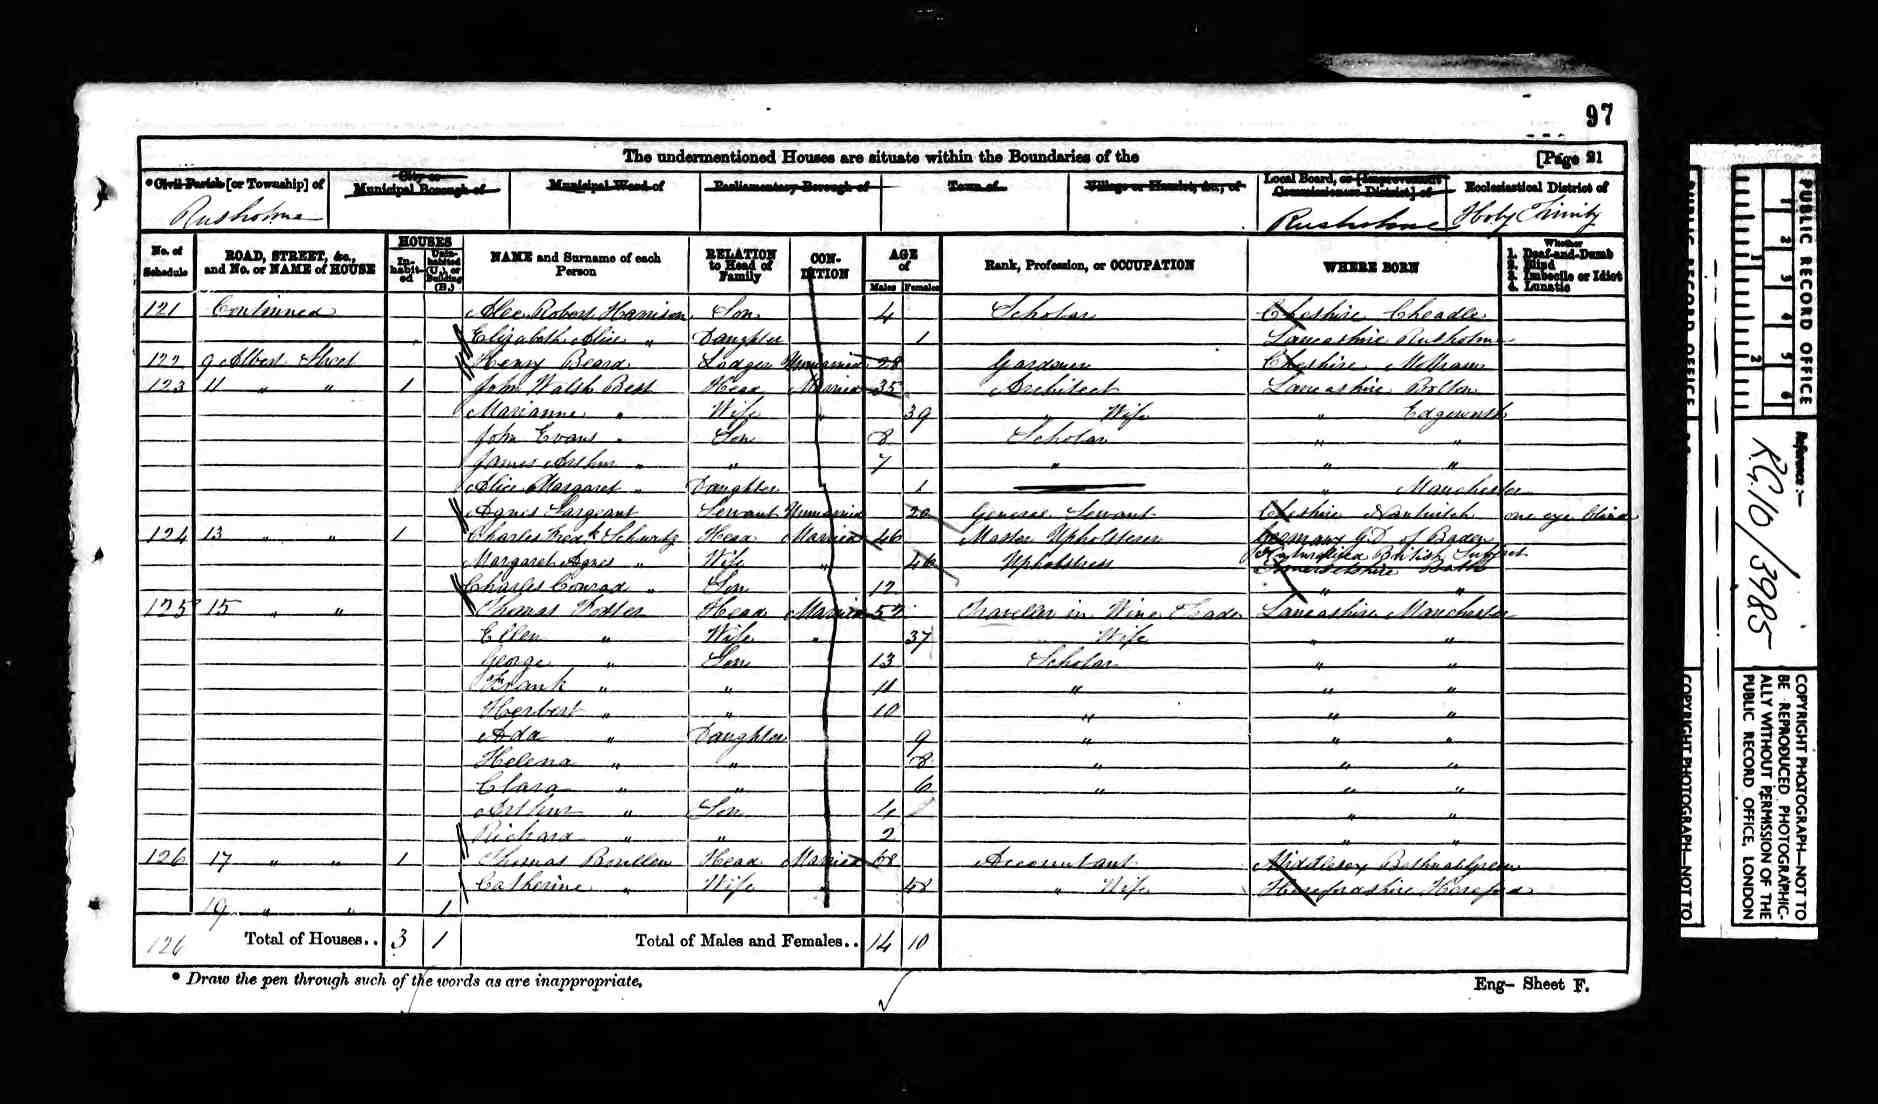 97
The undermentioned Houses are situate within the Boundaries of the
[Page 21
* Civil Parish [or Township] of
City or Municipal Borough of
Municipal Ward of
Parliamentary Borough of
Town of
Village or Hamlet, &c., of
Local Board, or [Improvement Commissioners District] of
Ecclesiastical District of
Rusholme
Rusholme
Holy Trinity
No. of Schedule
ROAD, STREET, &c., and No. or NAME of HOUSE
HOUSES
In-habit-ed
Unin-habited (U.), or Building (B.)
NAME and Surname of each Person
RELATION to Head of Family
CON-DITION
AGE of
Males
Females
Rank, Profession, or OCCUPATION
WHERE BORN
Whether
1. Deaf-and-Dumb
2. Blind
3. Imbecile or Idiot
4. Lunatic
121 Continued Alec Robert Harrison Son 4 Scholar Cheshire Cheadle
Elizabeth Alice " Daughter 1 Lancashire Rusholme
122 9 Albert Street Henry Beard Lodger Unmarried 28 Gardener Cheshire Mottram
123 11 " " 1 John Walsh Best Head Married 35 Architect Lancashire Bolton
Marianne " Wife " 39 " Wife " Edgeworth
John Evans " Son 8 Scholar " "
James Arthur " " 7 " " "
Alice Margaret " Daughter 1 " Manchester
Agnes Sargeant Servant Unmarried 20 General Servant Cheshire Nantwich one eye blind
124 13 " " 1 Charles Fredk Schwartz Head Married 46 Master Upholsterer Germany G.D. of Baden
Naturalised British Subject
Margaret Agnes " Wife " 46 Upholstress Somersetshire Bath
Charles Conrad " Son 12 " "
125 15 " " Thomas Foster Head Married 52 Traveller in Wine Trade Lancashire Manchester
Ellen " Wife " 37 " Wife " "
George " Son 13 Scholar " "
Frank " " 11 " " "
Herbert " " 10 " " "
Ada " Daughter 9 " " "
Helena " " 8 " " "
Clara " " 6 " " "
Arthur " Son 4 " "
Richard " " 2 " "
126 17 " " 1 Thomas Head Married 68 Accountant Middlesex Bethnal Green
Catherine " Wife " 48 " Wife Herefordshire Hereford
19 " " 1
126 Total of Houses.. 3 1 Total of Males and Females.. 14 10
* Draw the pen through such of the words as are inappropriate.
Eng- Sheet F.
PUBLIC RECORD OFFICE
1 2 3 4 5 6
1 2
Reference:-
RG 10/3985
COPYRIGHT PHOTOGRAPH—NOT TO BE REPRODUCED PHOTOGRAPHIC-ALLY WITHOUT PERMISSION OF THE PUBLIC RECORD OFFICE, LONDON